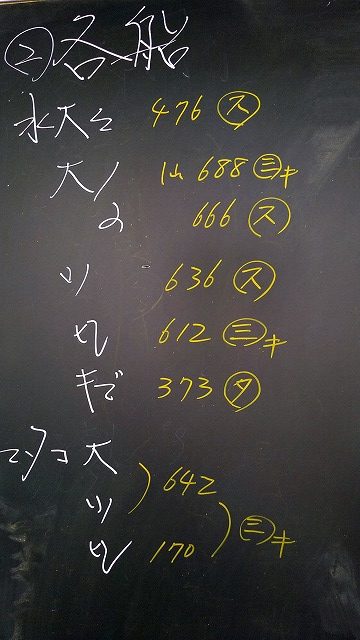 ②各船
水大〻 476 ㋜
大ノ 仙 688 ㊂キ
〃 666 ㋜
ツ 636 ㋜
612 ㊂キ
キで 373 ㋟
マンタコ 大
ツ 642
170 ㊂キ